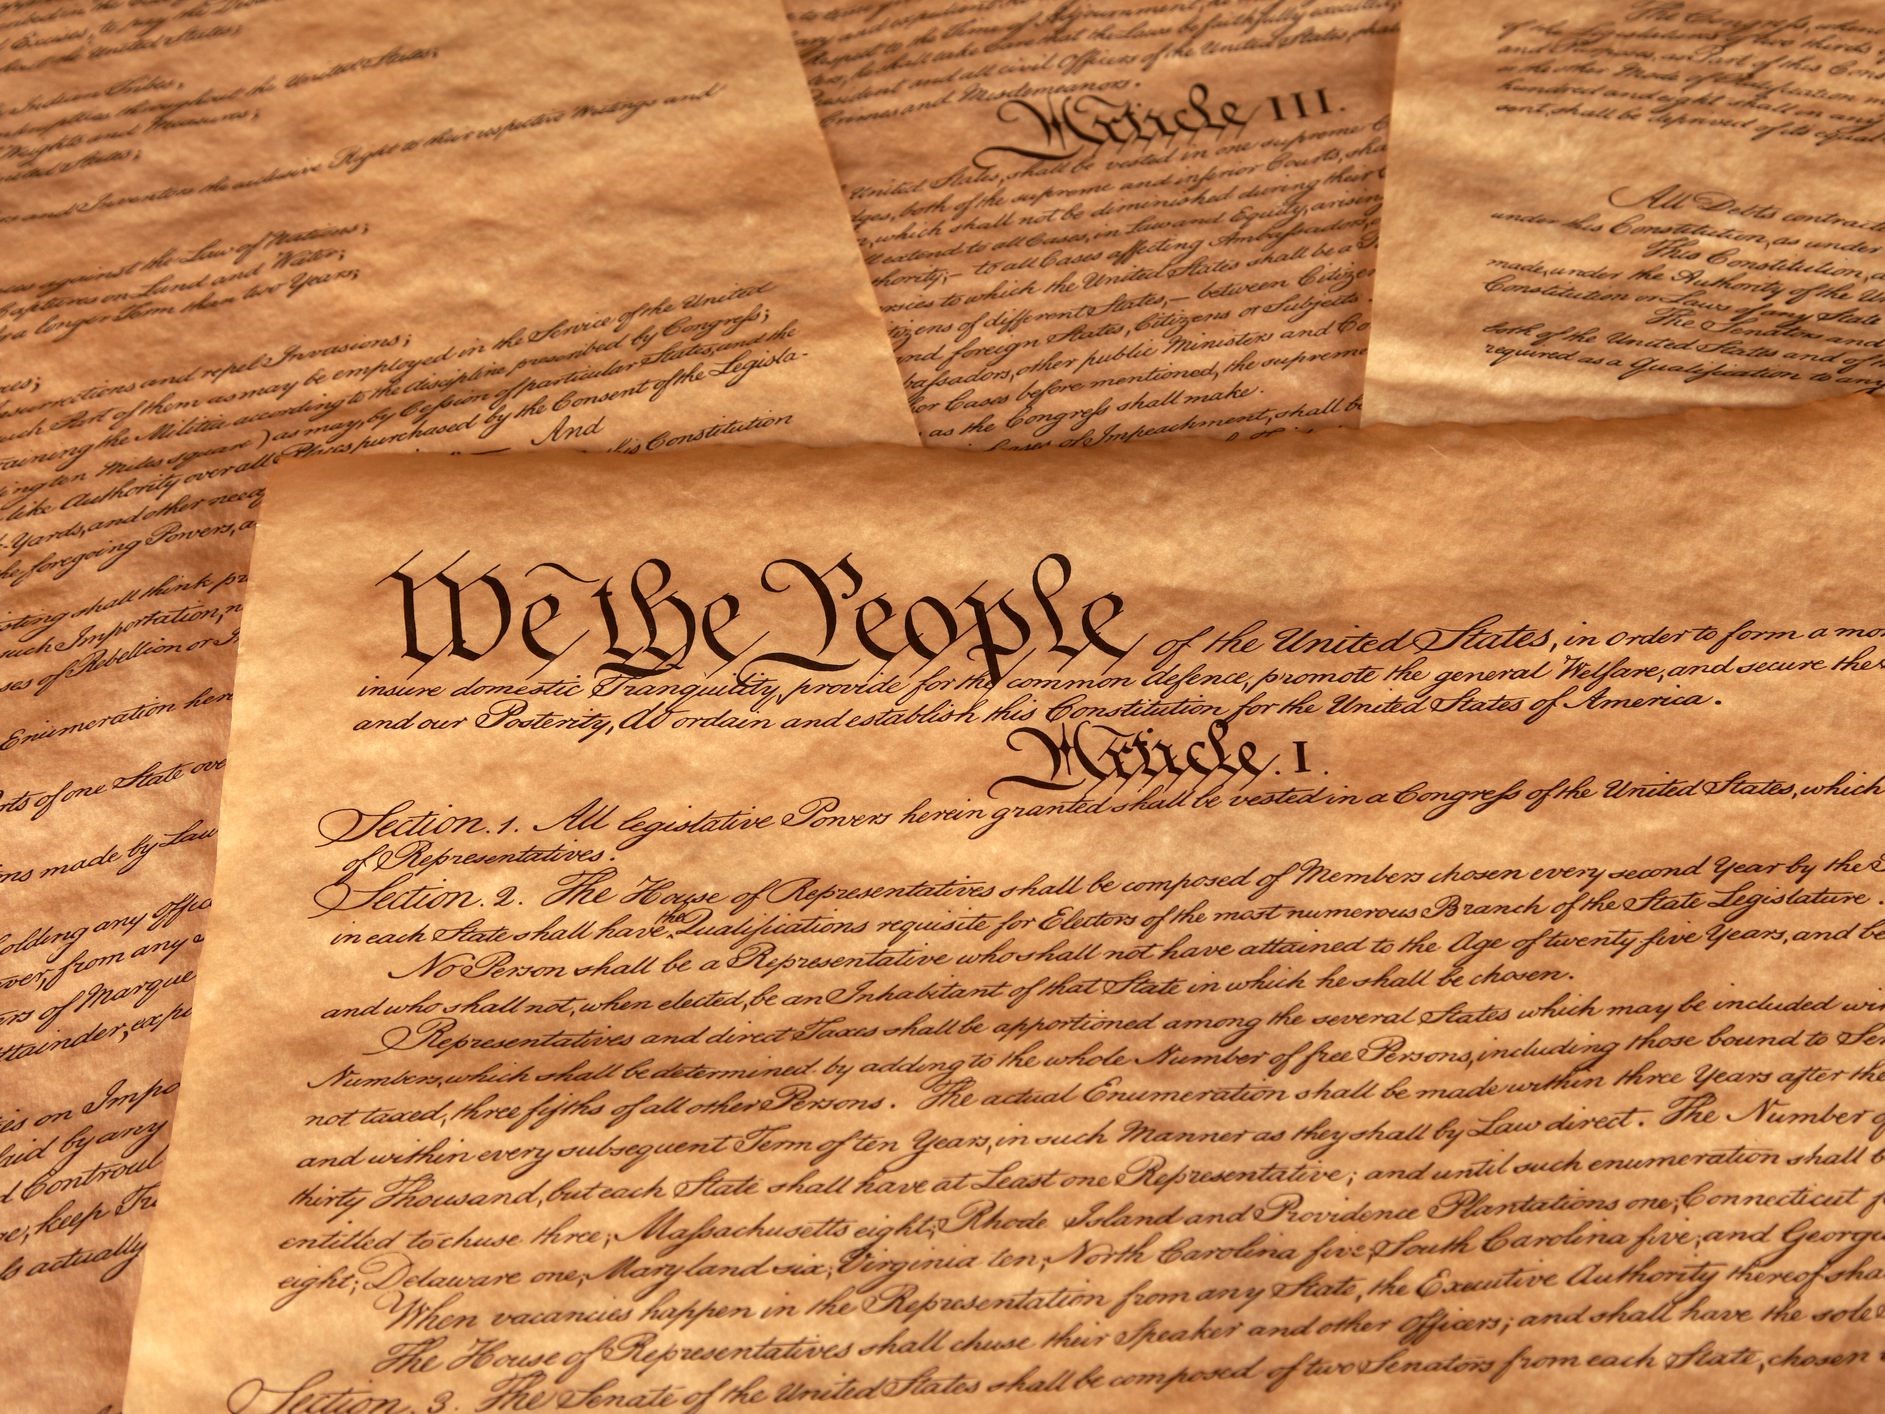 Excises, to pay the Debts
the United States;
Indian Tribes;
throughout the United States;
Weights and Measures;
United States;
and Inventors the exclusive Right to their respective Writings and
against the Law of Nations;
Captures on Land and Water;
a longer Term than two Years;
Insurrections and repel Invasions;
such Part of them as may be employed in the Service of the United
training the Militia according to the discipline prescribed by Congress;
ten Miles square) as may, by Cession of particular States, and the
like Authority over all Places purchased by the Consent of the Legisla-
Yards, and other need
And
the foregoing Powers, a
this Constitution
existing shall think pr
such Importation, n
ses of Rebellion or In
Enumeration here
rts of one State ove
ns made by Law
holding any Offic
ver, from any
rs of Marque
ttainder, ex po
ies on Impo
laid by any
d Controul
re, keep Tr
ss actually
respect to the Time of Adjournment, he
he shall take Care that the Laws be faithfully executed,
President and all civil Officers of the United States, shall
Crimes and Misdemeanors.
Article III.
United States, shall be vested in one supreme C
ges, both of the supreme and inferior Courts, sha
which shall not be diminished during their C
ll extend to all Cases, in Law and Equity, arisin
thority;— to all Cases affecting Ambassadors,
rsies to which the United States shall be a
tizens of different States,— between Citizen
and foreign States, Citizens or Subjects.
bassadors, other public Ministers and Co
er Cases before mentioned, the supreme
as the Congress shall make.
Cases of Impeachment, shall b
The Congress, when
of the Legislatures of two thirds
and Purposes, as Part of this Cons
or the other Mode of Ratification m
hundred and eight shall in any
sent, shall be deprived of its equal
All Debts contract
under this Constitution, as under
This Constitution, a
made, under the Authority of the Un
Constitution or Laws of any State
The Senators and
both of the United States and of th
required as a Qualification to any
We the People of the United States, in order to form a mor
insure domestic Tranquility, provide for the common defence, promote the general Welfare, and secure the
and our Posterity, do ordain and establish this Constitution for the United States of America.
Article. I.
Section. 1. All legislative Powers herein granted shall be vested in a Congress of the United States, which
of Representatives.
Section. 2. The House of Representatives shall be composed of Members chosen every second Year by the
in each State shall have the Qualifications requisite for Electors of the most numerous Branch of the State Legislature.
No Person shall be a Representative who shall not have attained to the Age of twenty five Years, and be
and who shall not, when elected, be an Inhabitant of that State in which he shall be chosen.
Representatives and direct Taxes shall be apportioned among the several States which may be included wi
Numbers, which shall be determined by adding to the whole Number of free Persons, including those bound to Ser
not taxed, three fifths of all other Persons. The actual Enumeration shall be made within three Years after the
and within every subsequent Term of ten Years, in such Manner as they shall by Law direct. The Number o
thirty Thousand, but each State shall have at Least one Representative; and until such enumeration shall b
entitled to chuse three, Massachusetts eight, Rhode Island and Providence Plantations one, Connecticut f
eight; Delaware one, Maryland six, Virginia ten, North Carolina five, South Carolina five, and Georg
When vacancies happen in the Representation from any State, the Executive Authority thereof sha
The House of Representatives shall chuse their Speaker and other Officers; and shall have the sole
Section. 3. The Senate of the United States shall be composed of two Senators from each State, chosen